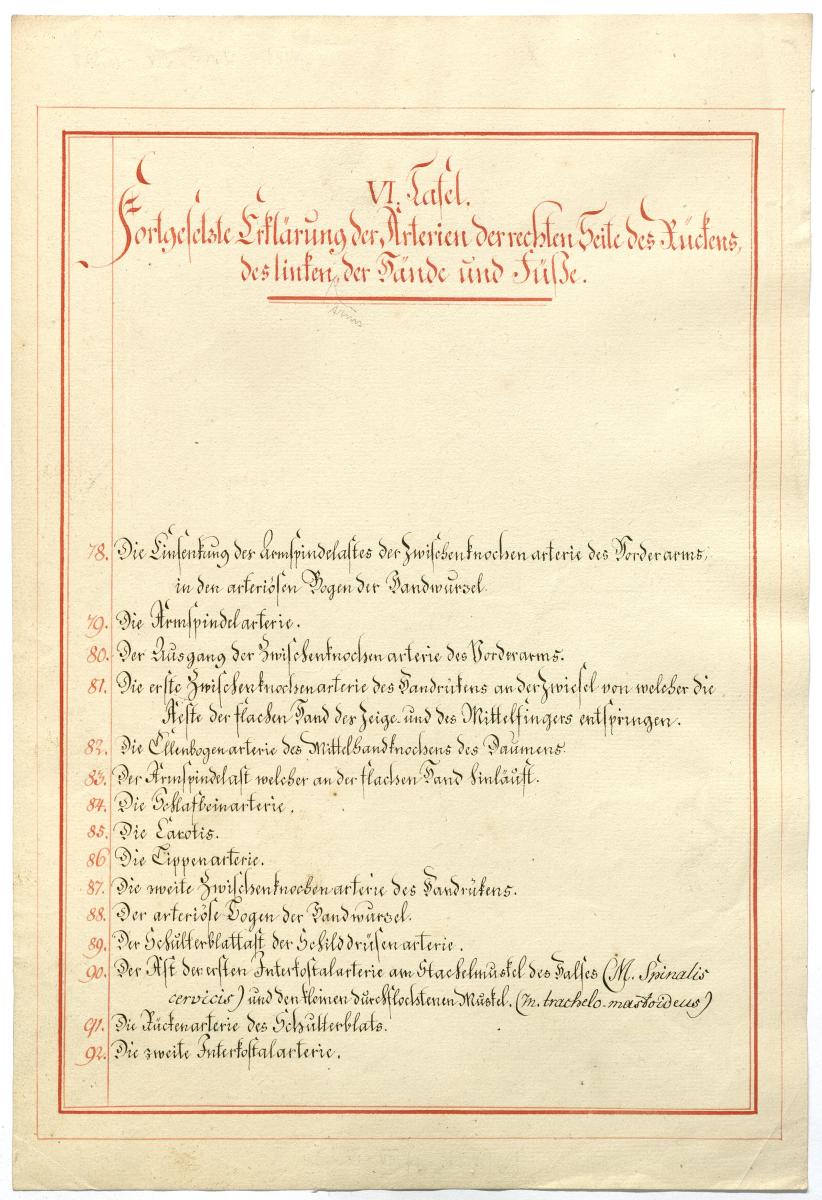 VI. Tafel.
Fortgesetzte Erklärung der Arterien der rechten Seite des Rückens,
des linken, der Hände und Füße.
Arms
78. Die Einsenkung des Armspindelastes der Zwischenknochenarterie des Vorderarms,
in den arteriösen Bogen der Handwurzel.
79. Die Armspindelarterie.
80. Der Ausgang der Zwischenknochenarterie des Vorderarms.
81. Die erste Zwischenknochenarterie des Handrükens an der Zwiesel von welcher die
Aeste der flachen Hand der Zeige- und des Mittelfingers entspringen.
82. Die Ellenbogenarterie des Mittelhandknochens des Daumens.
83. Der Armspindelast welcher an der flachen Hand hinläuft.
84. Die Schlafbeinarterie.
85. Die Carotis.
86. Die Lippenarterie.
87. Die zweite Zwischenknochenarterie des Handrükens.
88. Der arteriöse Bogen der Handwurzel.
89. Der Schulterblattast der Schilddrüsenarterie.
90. Der Ast der ersten Interkostalarterie am Stachelmuskel des Halses (M. Spinalis
cervicis) und den kleinen durchflochtenen Muskel. (m. trachelo-mastoideus)
91. Die Rückenarterie des Schulterblats.
92. Die zweite Interkostalarterie.